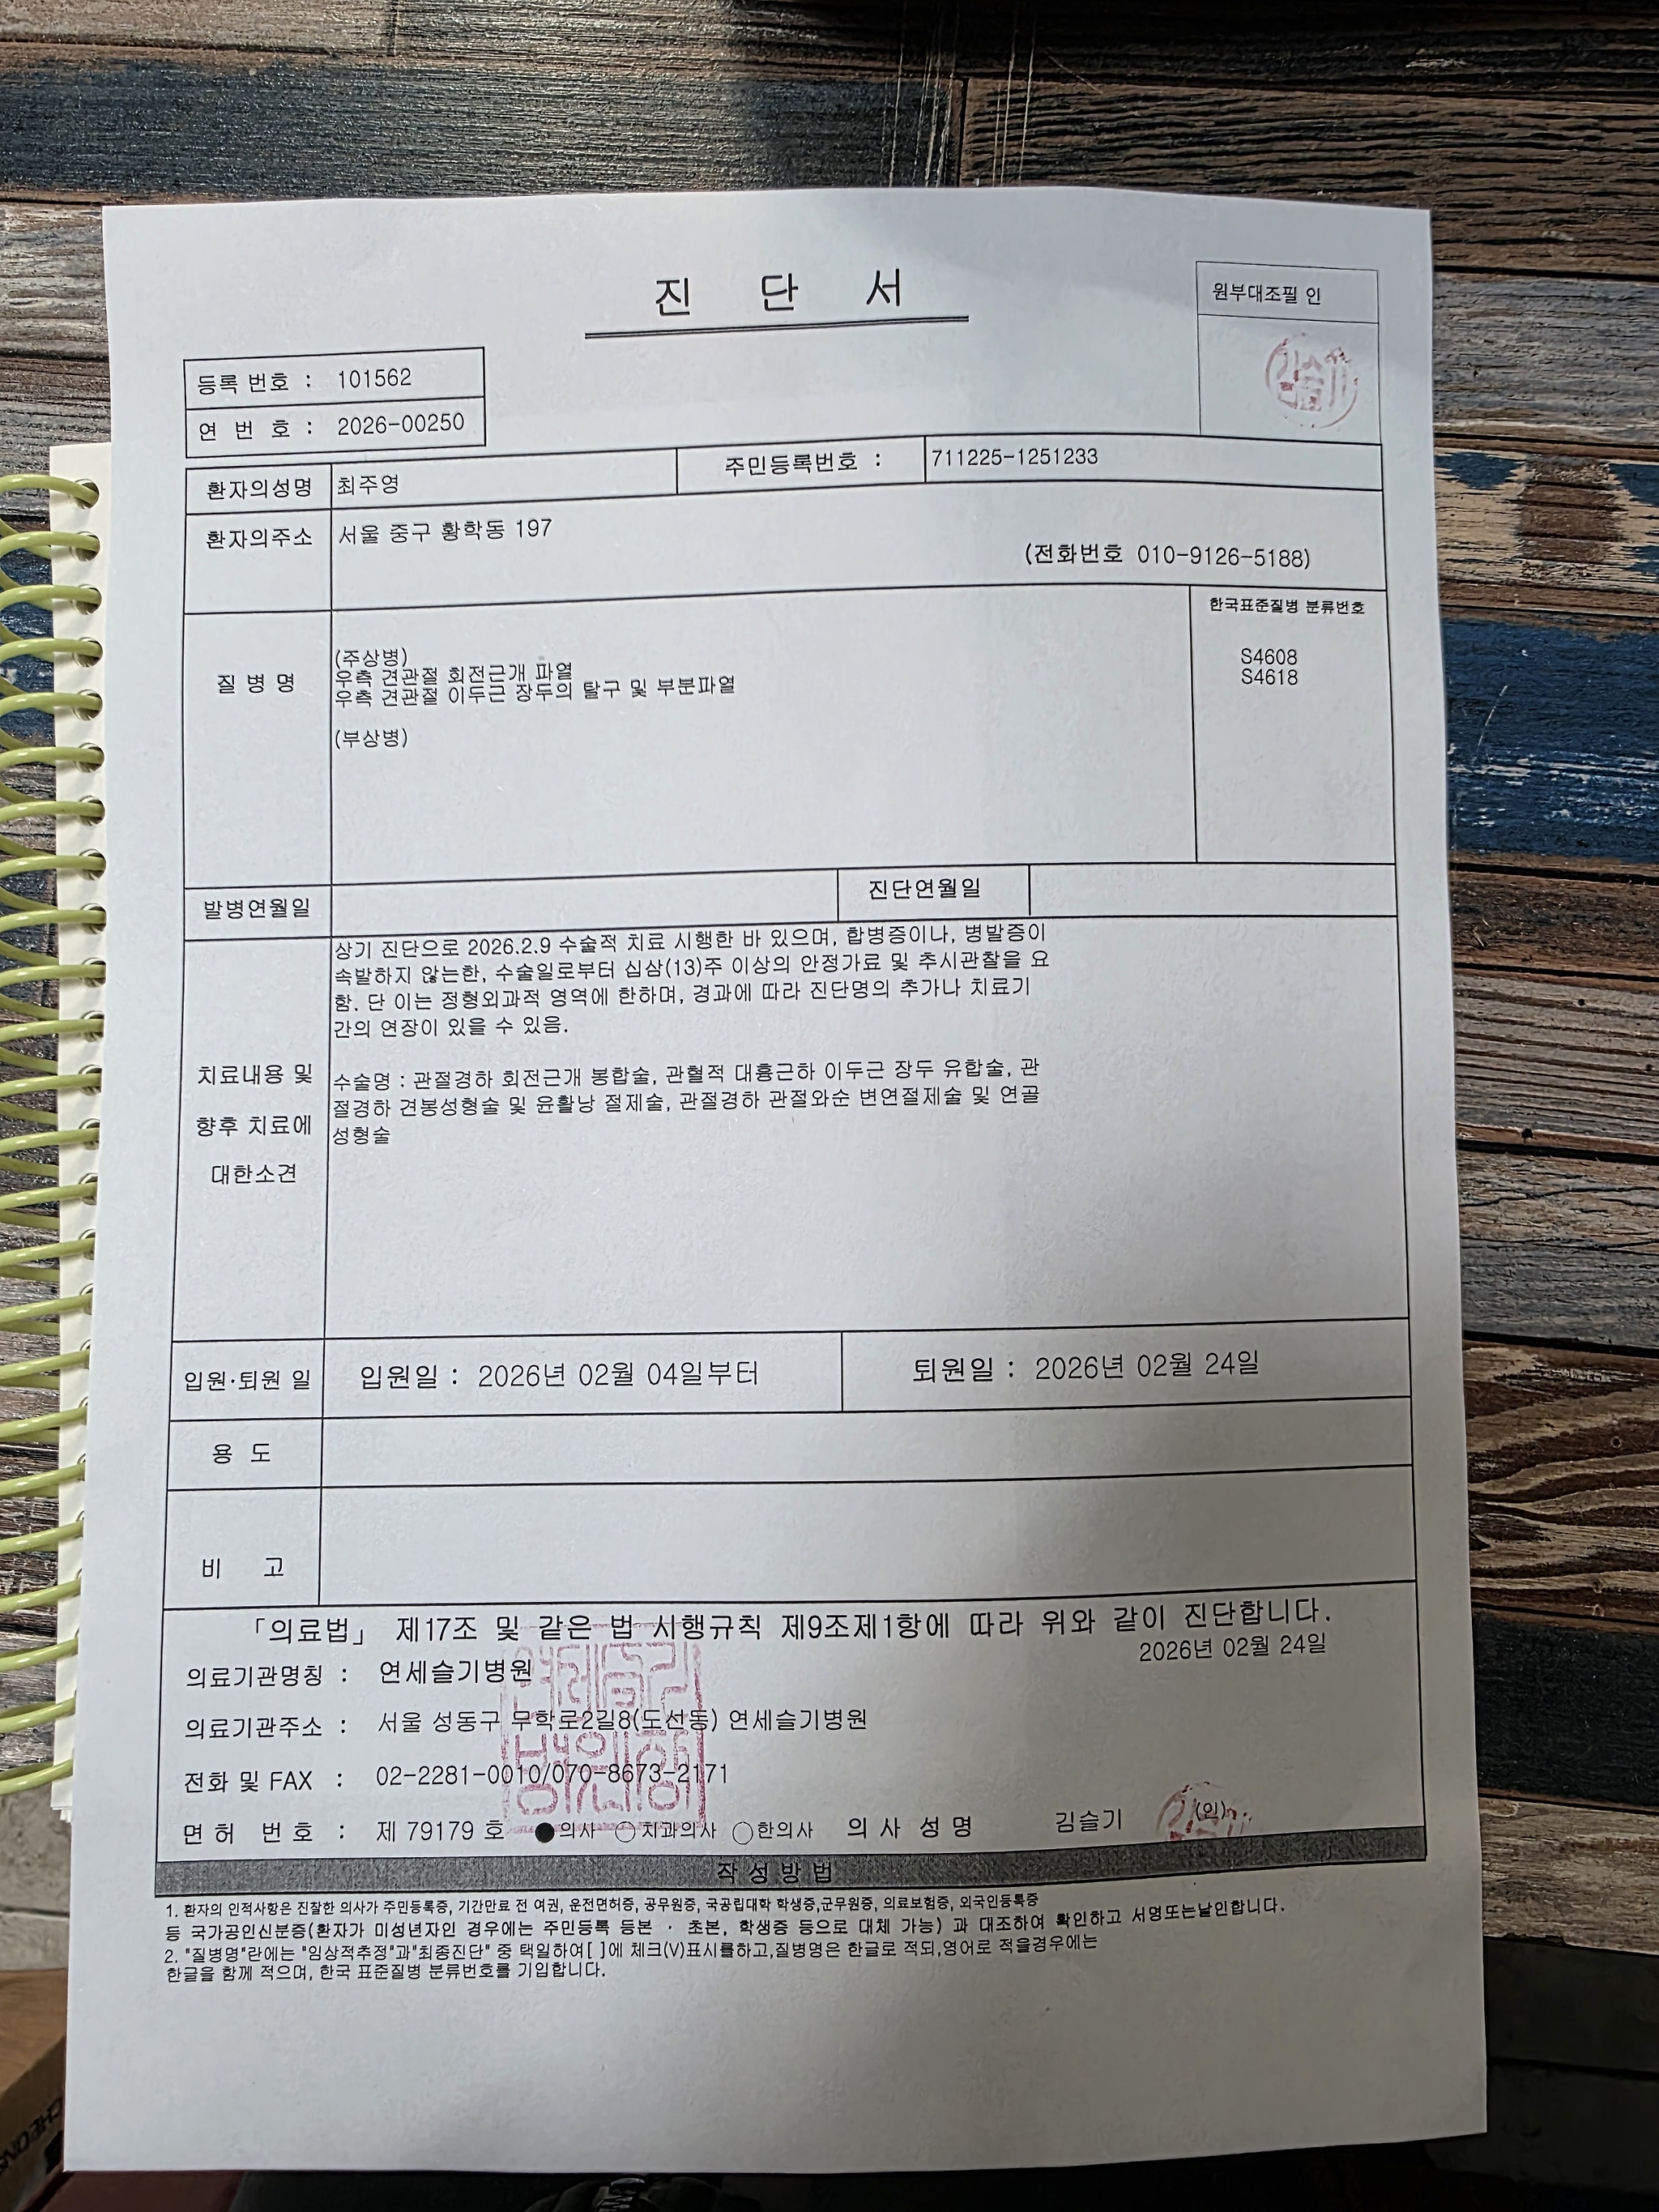 진 단 서
원부대조필 인
등록 번호 : 101562
연 번 호 : 2026-00250
환자의성명 최주영 주민등록번호 : 711225-1251233
환자의주소 서울 중구 황학동 197
(전화번호 010-9126-5188)
한국표준질병 분류번호
질 병 명
(주상병)
우측 견관절 회전근개 파열 S4608
우측 견관절 이두근 장두의 탈구 및 부분파열 S4618
(부상병)
발병연월일 진단연월일
치료내용 및
향후 치료에
대한소견
상기 진단으로 2026.2.9 수술적 치료 시행한 바 있으며, 합병증이나, 병발증이
속발하지 않는한, 수술일로부터 십삼(13)주 이상의 안정가료 및 추시관찰을 요
함. 단 이는 정형외과적 영역에 한하며, 경과에 따라 진단명의 추가나 치료기
간의 연장이 있을 수 있음.
수술명 : 관절경하 회전근개 봉합술, 관혈적 대흉근하 이두근 장두 유합술, 관
절경하 견봉성형술 및 윤활낭 절제술, 관절경하 관절와순 변연절제술 및 연골
성형술
입원·퇴원 일 입원일 : 2026년 02월 04일부터 퇴원일 : 2026년 02월 24일
용 도
비 고
「의료법」 제17조 및 같은 법 시행규칙 제9조제1항에 따라 위와 같이 진단합니다.
2026년 02월 24일
의료기관명칭 : 연세슬기병원
의료기관주소 : 서울 성동구 무학로2길8(도선동) 연세슬기병원
전화 및 FAX : 02-2281-0010/070-8673-2171
면 허 번 호 : 제 79179 호 ●의사 ○치과의사 ○한의사 의 사 성 명 김슬기 (인)
작 성 방 법
1. 환자의 인적사항은 진찰한 의사가 주민등록증, 기간만료 전 여권, 운전면허증, 공무원증, 국공립대학 학생증,군무원증, 의료보험증, 외국인등록증
등 국가공인신분증(환자가 미성년자인 경우에는 주민등록 등본 · 초본, 학생증 등으로 대체 가능) 과 대조하여 확인하고 서명또는날인합니다.
2. "질병명"란에는 "임상적추정"과"최종진단" 중 택일하여[ ]에 체크(V)표시를하고,질병명은 한글로 적되,영어로 적을경우에는
한글을 함께 적으며, 한국 표준질병 분류번호를 기입합니다.